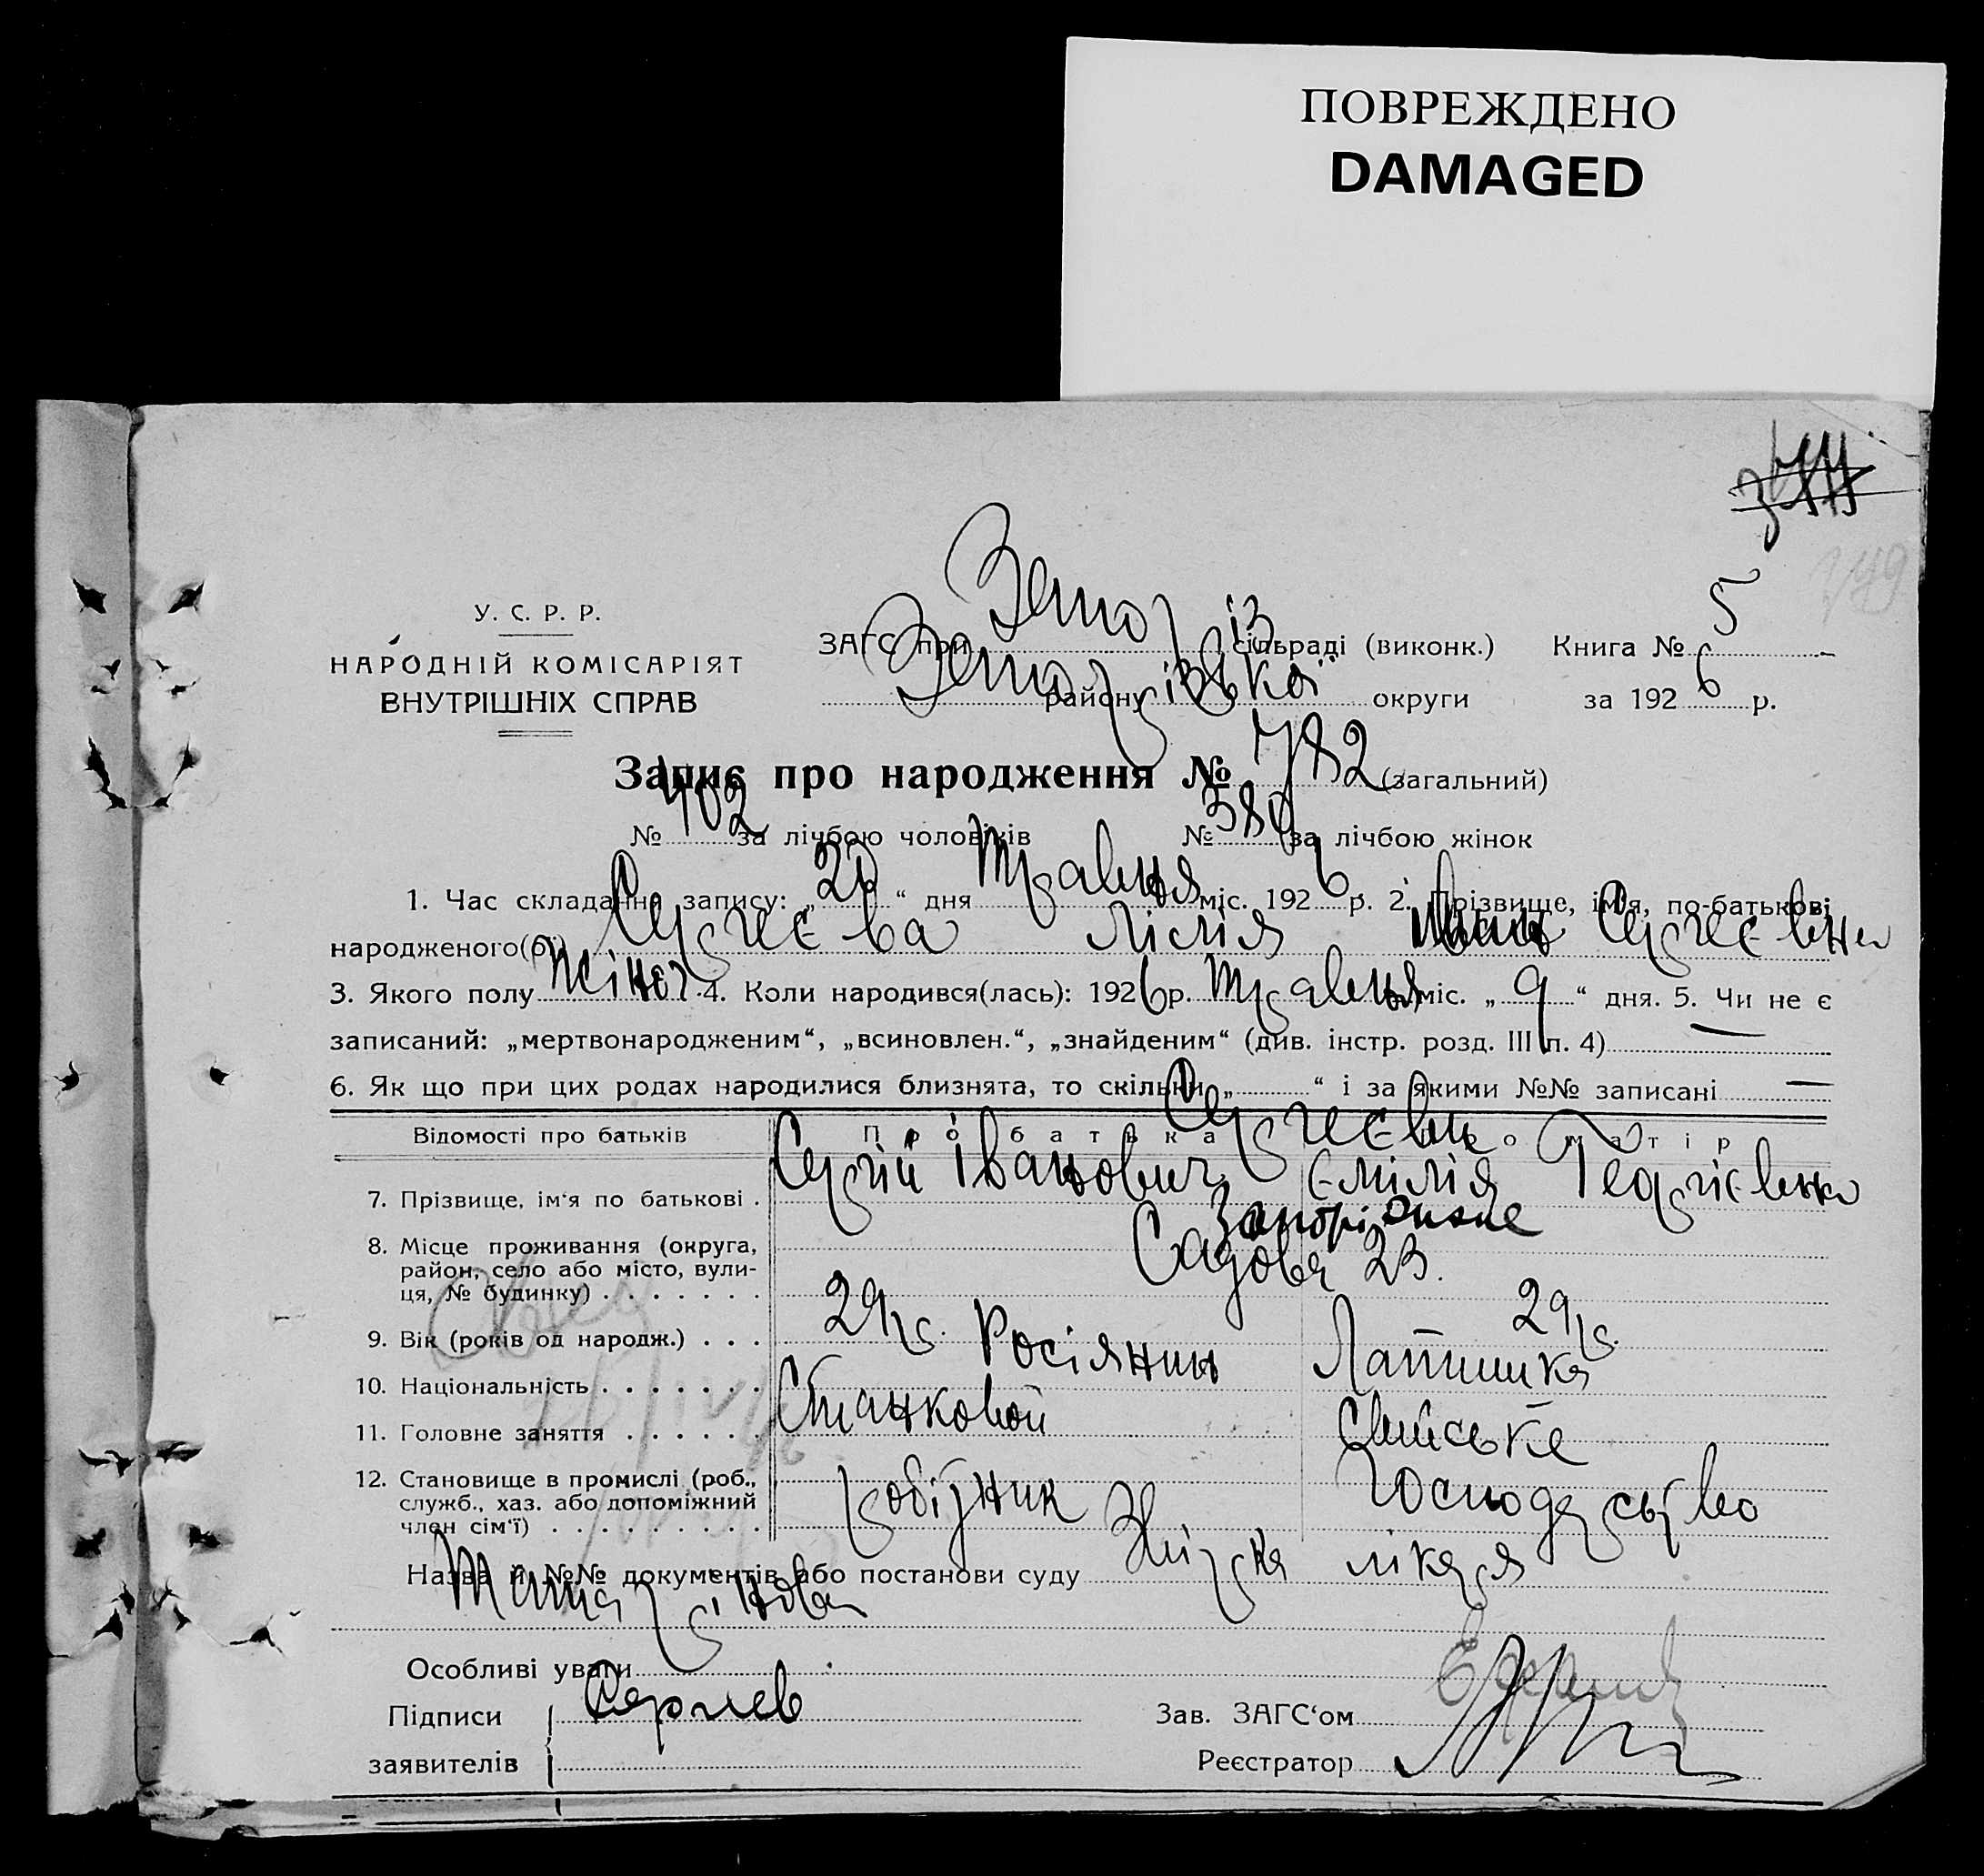 ПОВРЕЖДЕНО
DAMAGED
5
У. С. Р. Р.
НАРОДНІЙ КОМІСАРІЯТ
ВНУТРІШНІХ СПРАВ
ЗАГС при Запоріз сільраді (виконк.) Книга №
району Запорізької округи за 1926 р.
Запис про народження № 782 (загальний)
№ 402 за лічбою чоловіків № 380 за лічбою жінок
1. Час складання запису: „ “ дня Травня міс. 1926 р. 2. Прізвище, ім'я, по-батькові
народженого(ої) Сергиєва Лілія Сергиєвна
3. Якого полу жіноч. 4. Коли народився(лась): 1926 р. Травня міс. „9“ дня. 5. Чи не є
записаний: „мертвонародженим“, „всиновлен.“, „знайденим“ (див. інстр. розд. III п. 4) —
6. Як що при цих родах народилися близнята, то скільки „ “ і за якими №№ записані —
Відомості про батьків Про батька Про матір
Сергиєви
7. Прізвище, ім'я по батькові . Сергій Іванович Емілія Георгієвна
8. Місце проживання (округа, район, село або місто, вули-ця, № будинку) . . . . . . . Садова 23.
9. Вік (років од народж.) . . . 29 р. 29 р.
10. Національність . . . . . . . Росіянин Латишка
11. Головне заняття . . . . . . Станковой Сільське
12. Становище в промислі (роб., служб., хаз. або допоміжний член сім'ї) . . . . . . . . . робітник господарство
Назва й №№ документів або постанови суду лікаря
Особливі уваги
Підписи Сергиев Зав. ЗАГС'ом
заявителів Реєстратор